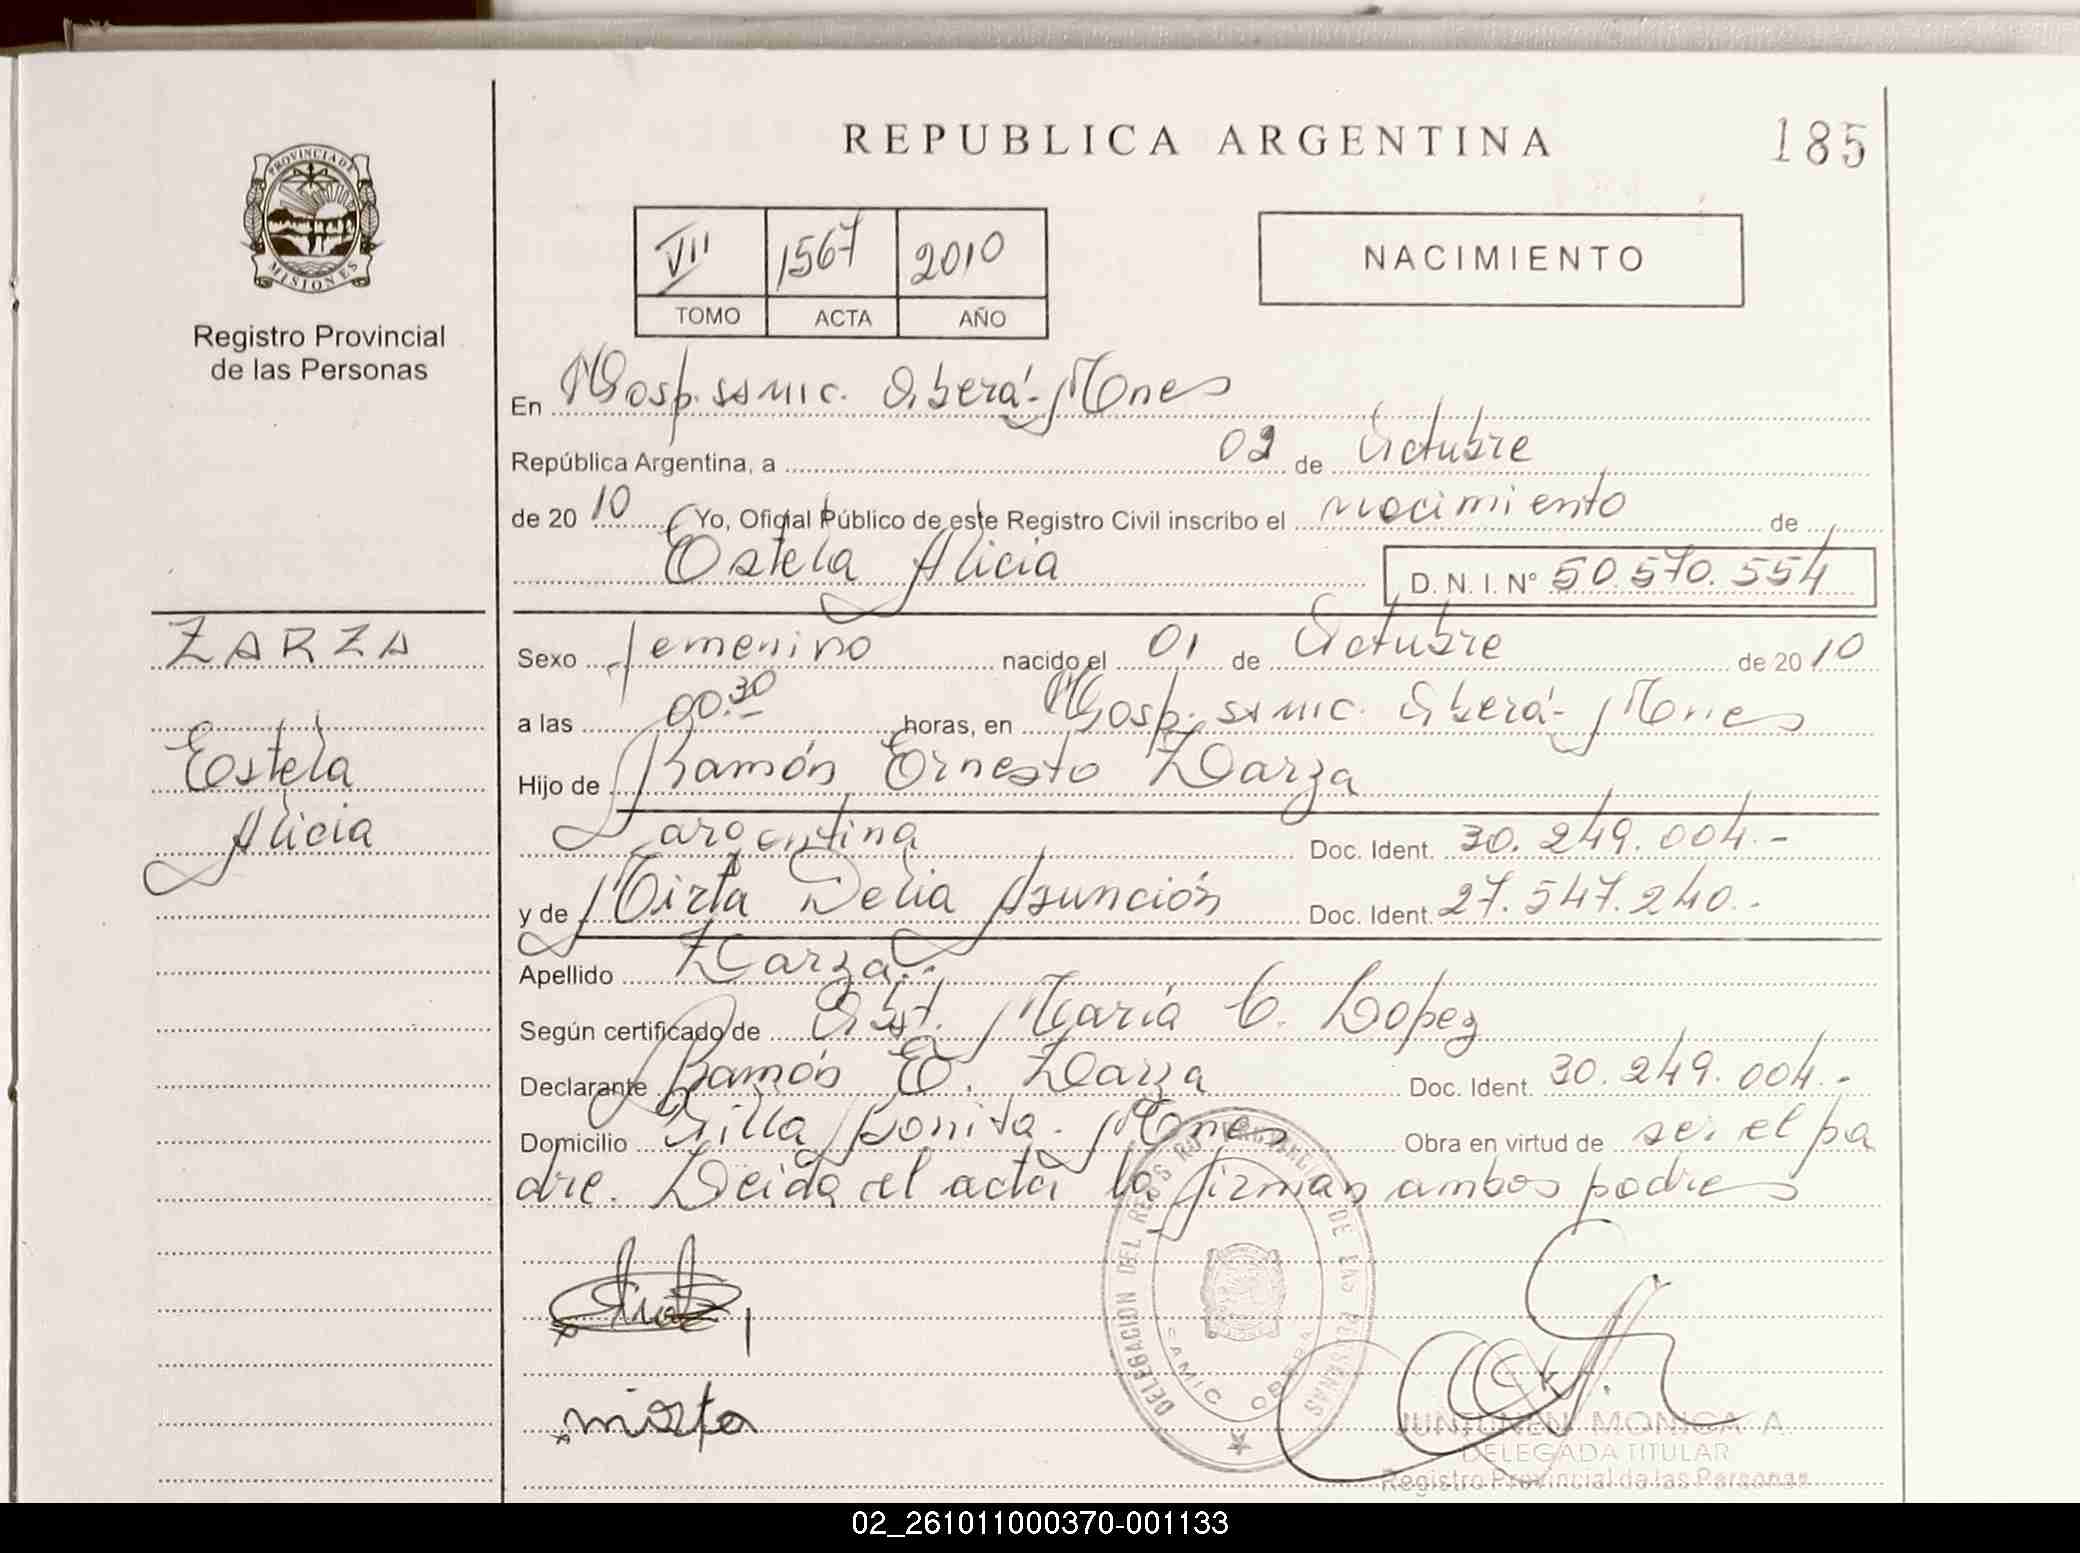 REPUBLICA ARGENTINA
185
PROVINCIA DE
MISIONES
Registro Provincial
de las Personas
VII 1567 2010
TOMO ACTA AÑO
NACIMIENTO
En Hosp. SAMIC. Oberá - Mnes
República Argentina, a 02 de Octubre
de 2010 Yo, Oficial Público de este Registro Civil inscribo el nacimiento de
Estela Alicia D. N. I. N° 50.570.554
ZARZA
Estela
Alicia
Sexo femenino nacido el 01 de Octubre de 2010
a las 00.30 horas, en Hosp. SAMIC. Oberá - Mnes
Hijo de Ramón Ernesto Zarza
argentina Doc. Ident. 30.249.004.-
y de Mirta Delia Asunción Doc. Ident. 27.547.240.-
Apellido Zarza.-
Según certificado de Obst. María C. Lopez
Declarante Ramón E. Zarza Doc. Ident. 30.249.004.-
Domicilio Villa Bonita - Mnes Obra en virtud de ser el pa
dre. Leida el acta la firman ambos padres
mirta
DELEGACION DEL REG. DE LAS PERSONAS
SAMIC OBERA
MONICA A.
DELEGADA TITULAR
Registro Provincial de las Personas
02_261011000370-001133